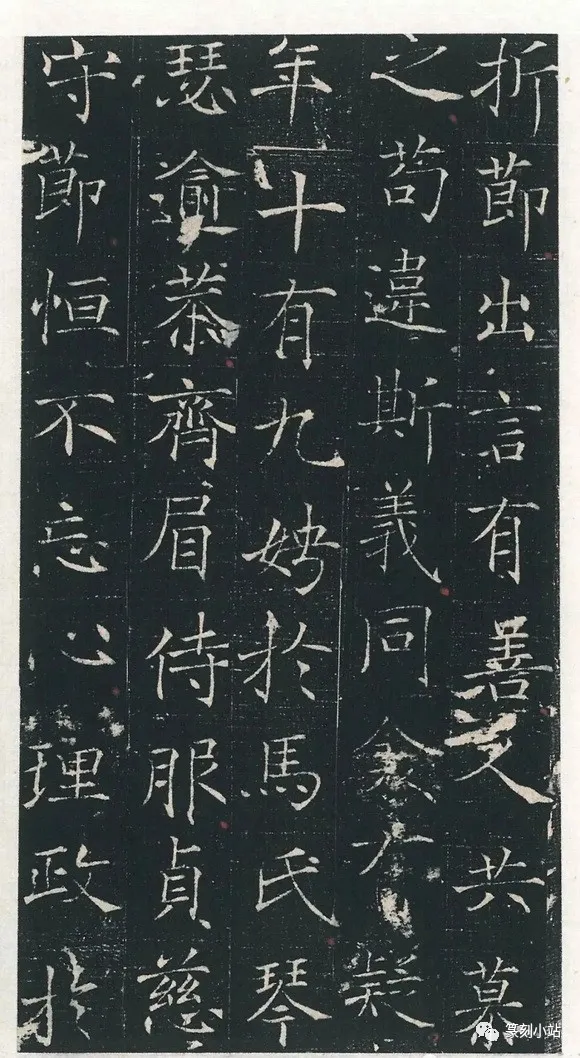 折節出言有善文共慕
之苟違斯義同人不疑
年十有九娉於馬氏琴
瑟逾恭齊眉侍服貞慈
守節恒不忘心理政於
篆刻小站